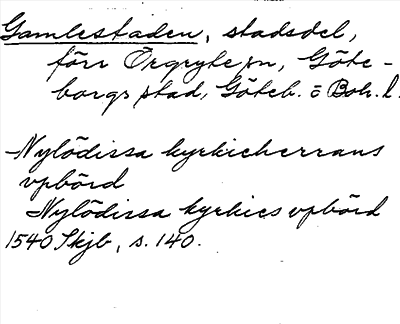 Gamlestaden, stadsdel,
förr Örgryte sn, Göte-
borgs stad, Göteb. o Boh. l.
Nylödissa kyrkieherrans
vpbörd
Nylödissa kyrkies vpbörd
1540 Skjb, s. 140.